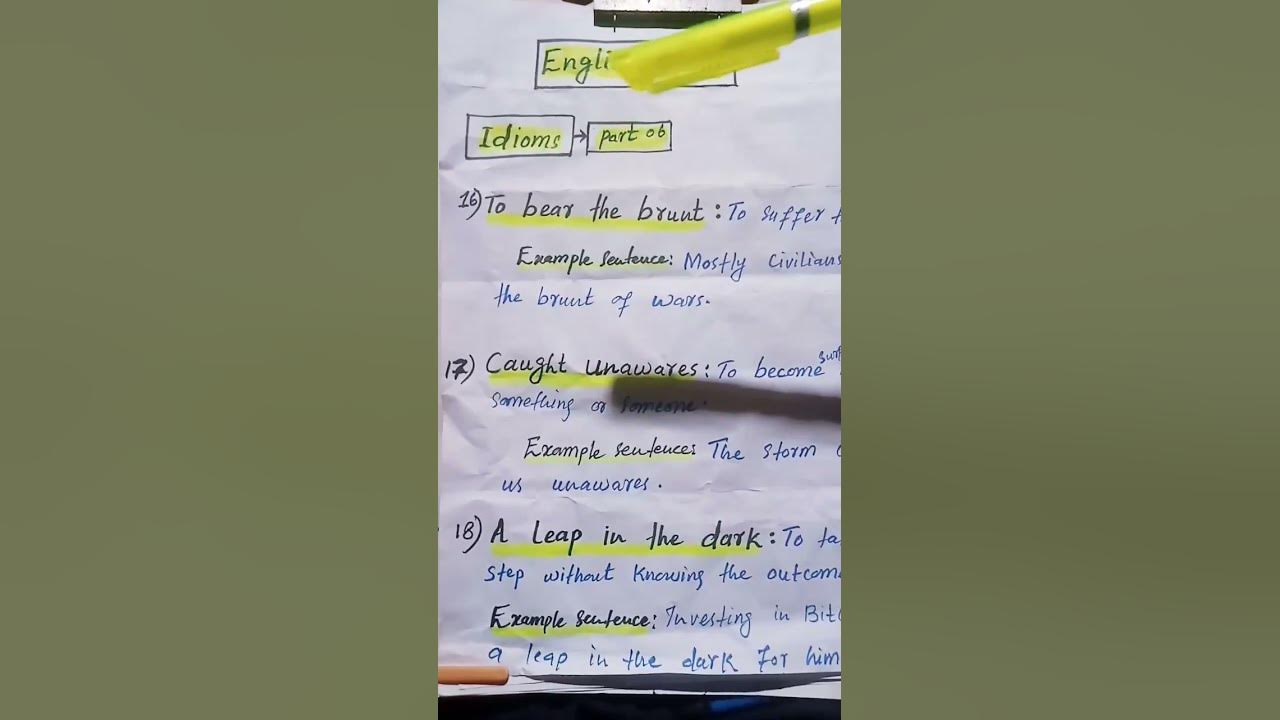 Engli
Idioms → part 06
16) To bear the brunt : To suffer
Example sentence: Mostly civilians
the brunt of wars.
17) Caught unawares : To become
something or someone.
Example sentence: The storm
us unawares.
18) A leap in the dark : To ta
step without knowing the outcom
Example sentence: Investing in Bit
a leap in the dark for him